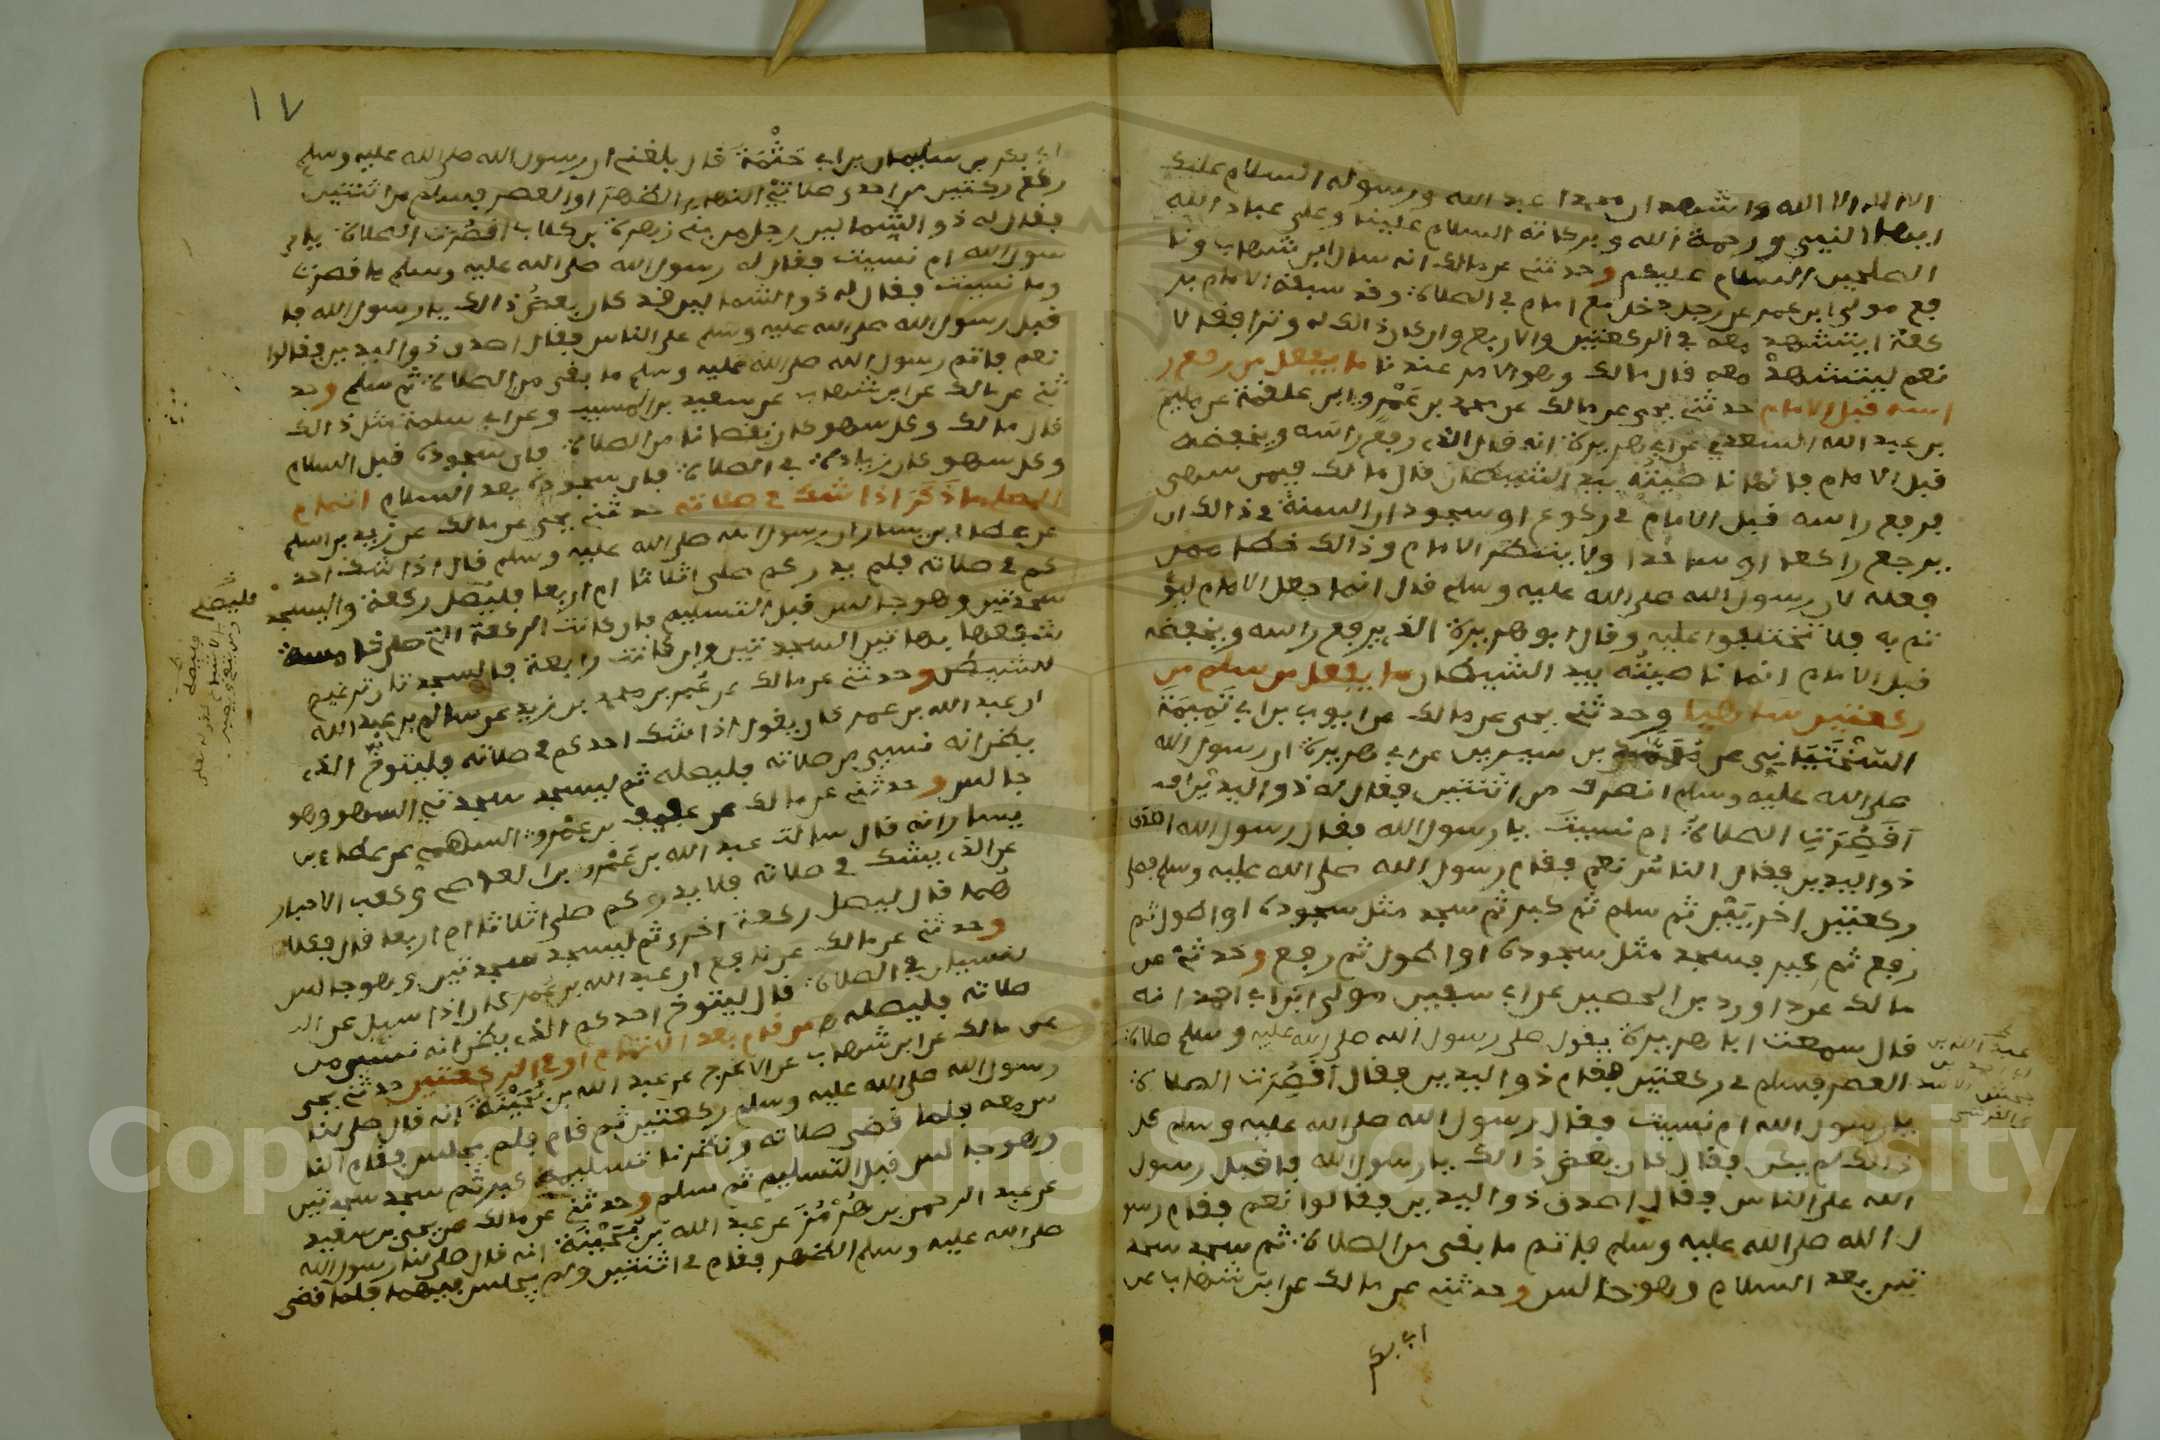 الا اله الا الله واشهد ان محمدا عبد الله ورسوله السلام عليك
ايها النبي ورحمة الله وبركاته السلام علينا وعلى عباد الله
الصلحين السلام عليكم وحدثني عن مالك انه سال ابن شهاب ونا
فع مولى ابن عمر عن رجل دخل مع امام في الصلاة وقد سبقه الامام بر
كعة ايتشهد معه في الركعتين والاربع وان كان ذالك له وترا فقالا
نعم ليتشهد معه قال مالك وهو الامر عندنا ما يفعل من رفع ر
اسه قبل الامام حدثني يحيى عن مالك عن محمد بن عمرو ابن علقمة عن مليح
بن عبد الله السعدي عن ابي هريرة انه قال الذي يرفع راسه ويخفضه
قبل الامام فانما ناصيته بيد الشيطان قال مالك فيمن سهى
فرفع راسه قبل الامام في ركوع او سجود ان السنة في ذالك ان
يرجع راكعا او ساجدا ولا ينتظر الامام وذالك خطا ممن
فعله لان رسول الله صلى الله عليه وسلم قال انما جعل الامام ليؤ
تم به فلا تختلفوا عليه وقال ابو هريرة الذي يرفع راسه ويخفضه
قبل الامام انما ناصيته بيد الشيطان ما يفعل من سلم من
ركعتين ساهيا وحدثني يحيى عن مالك عن ايوب بن ابي تميمة
السختياني عن محمد بن سيرين عن ابي هريرة ان رسول الله
صلى الله عليه وسلم انصرف من اثنتين فقال له ذو اليدين
اقصرت الصلاة ام نسيت يا رسول الله فقال رسول الله اصدق
ذو اليدين فقال الناس نعم فقام رسول الله صلى الله عليه وسلم فصلى
ركعتين اخريين ثم سلم ثم كبر ثم سجد مثل سجوده او اطول ثم
رفع ثم كبر فسجد مثل سجوده او اطول ثم رفع وحدثني عن
مالك عن داود بن الحصين عن ابي سفين مولى ابن ابي احمد انه
قال سمعت ابا هريرة يقول صلى رسول الله صلى الله عليه وسلم صلاة
العصر فسلم في ركعتين فقام ذو اليدين فقال اقصرت الصلاة
يا رسول الله ام نسيت فقال رسول الله صلى الله عليه وسلم كل
ذالك لم يكن فقال كان بعض ذالك يا رسول الله فاقبل رسول
الله على الناس فقال اصدق ذو اليدين فقالوا نعم فقام رسو
ل الله صلى الله عليه وسلم فاتم ما بقي من الصلاة ثم سجد سجد
تين بعد السلام وهو جالس وحدثني عن مالك عن ابن شهاب عن
ابي بكر
١٧
ابي بكر بن سليمان بن ابي حثمة قال بلغني ان رسول الله صلى الله عليه وسلم
ركع ركعتين من احدى صلاتي النهار الظهر او العصر فسلم من اثنتين
فقال له ذو الشمالين رجل من بني زهرة بن كلاب اقصرت الصلاة يا ر
سول الله ام نسيت فقال له رسول الله صلى الله عليه وسلم ما قصرت
وما نسيت فقال له ذو الشمالين قد كان بعض ذالك يا رسول الله فا
قبل رسول الله صلى الله عليه وسلم على الناس فقال اصدق ذو اليدين فقالوا
نعم فاتم رسول الله صلى الله عليه وسلم ما بقي من الصلاة ثم سلم وحد
ثني عن مالك عن ابن شهاب عن سعيد بن المسيب وعن ابي سلمة مثل ذالك
قال مالك وكل سهو كان نقصانا من الصلاة فان سجوده قبل السلام
وكل سهو كان زيادة في الصلاة فان سجوده بعد السلام اتمام
المصلي ما ذكر اذا شك في صلاته حدثني يحيى عن مالك عن زيد بن اسلم
عن عطاء بن يسار ان رسول الله صلى الله عليه وسلم قال اذا شك احد
كم في صلاته فلم يدر كم صلى اثلاثا ام اربعا فليصل ركعة واليسجد
سجدتين وهو جالس قبل التسليم فان كانت الركعة التي صلى خامسة
شفعها بهاتين السجدتين وان كانت رابعة فالسجدتان ترغيم
للشيطن وحدثني عن مالك عن عمر بن محمد بن زيد عن سالم بن عبد الله
ان عبد الله بن عمر كان يقول اذا شك احدكم في صلاته فليتوخ الذي
يظن انه نسي من صلاته فليصله ثم ليسجد سجدتي السهو وهو
جالس وحدثني عن مالك عن عفيف بن عمرو السهمي عن عطاء بن
يسار انه قال سالت عبد الله بن عمرو بن العاصي وكعب الاحبار
عن الذي يشك في صلاته فلا يدري كم صلى اثلاثا ام اربعا قال فكلا
هما قال ليصل ركعة اخرى ثم ليسجد سجدتين وهو جالس
وحدثني عن مالك عن نافع ان عبد الله بن عمر كان اذا سيل عن ال
نسيان في الصلاة قال ليتوخ احدكم الذي يظن انه نسي من
صلاته فليصله من قام بعد الاتمام او في الركعتين حدثني يحيى
عن مالك عن ابن شهاب عن الاعرج عن عبد الله بن بحينة انه قال صلى لنا
رسول الله صلى الله عليه وسلم ركعتين ثم قام فلم يجلس فقام النا
س معه فلما قضى صلاته ونظرنا تسليمه كبر ثم سجد سجدتين
وهو جالس قبل التسليم ثم سلم وحدثني عن مالك عن يحيى بن سعيد
عن عبد الرحمن بن هرمز عن عبد الله بن بحينة انه قال صلى لنا رسول الله
صلى الله عليه وسلم الظهر فقام في اثنتين ولم يجلس فيهما فلما قضى
فليصلي
Copyright © King Saud University